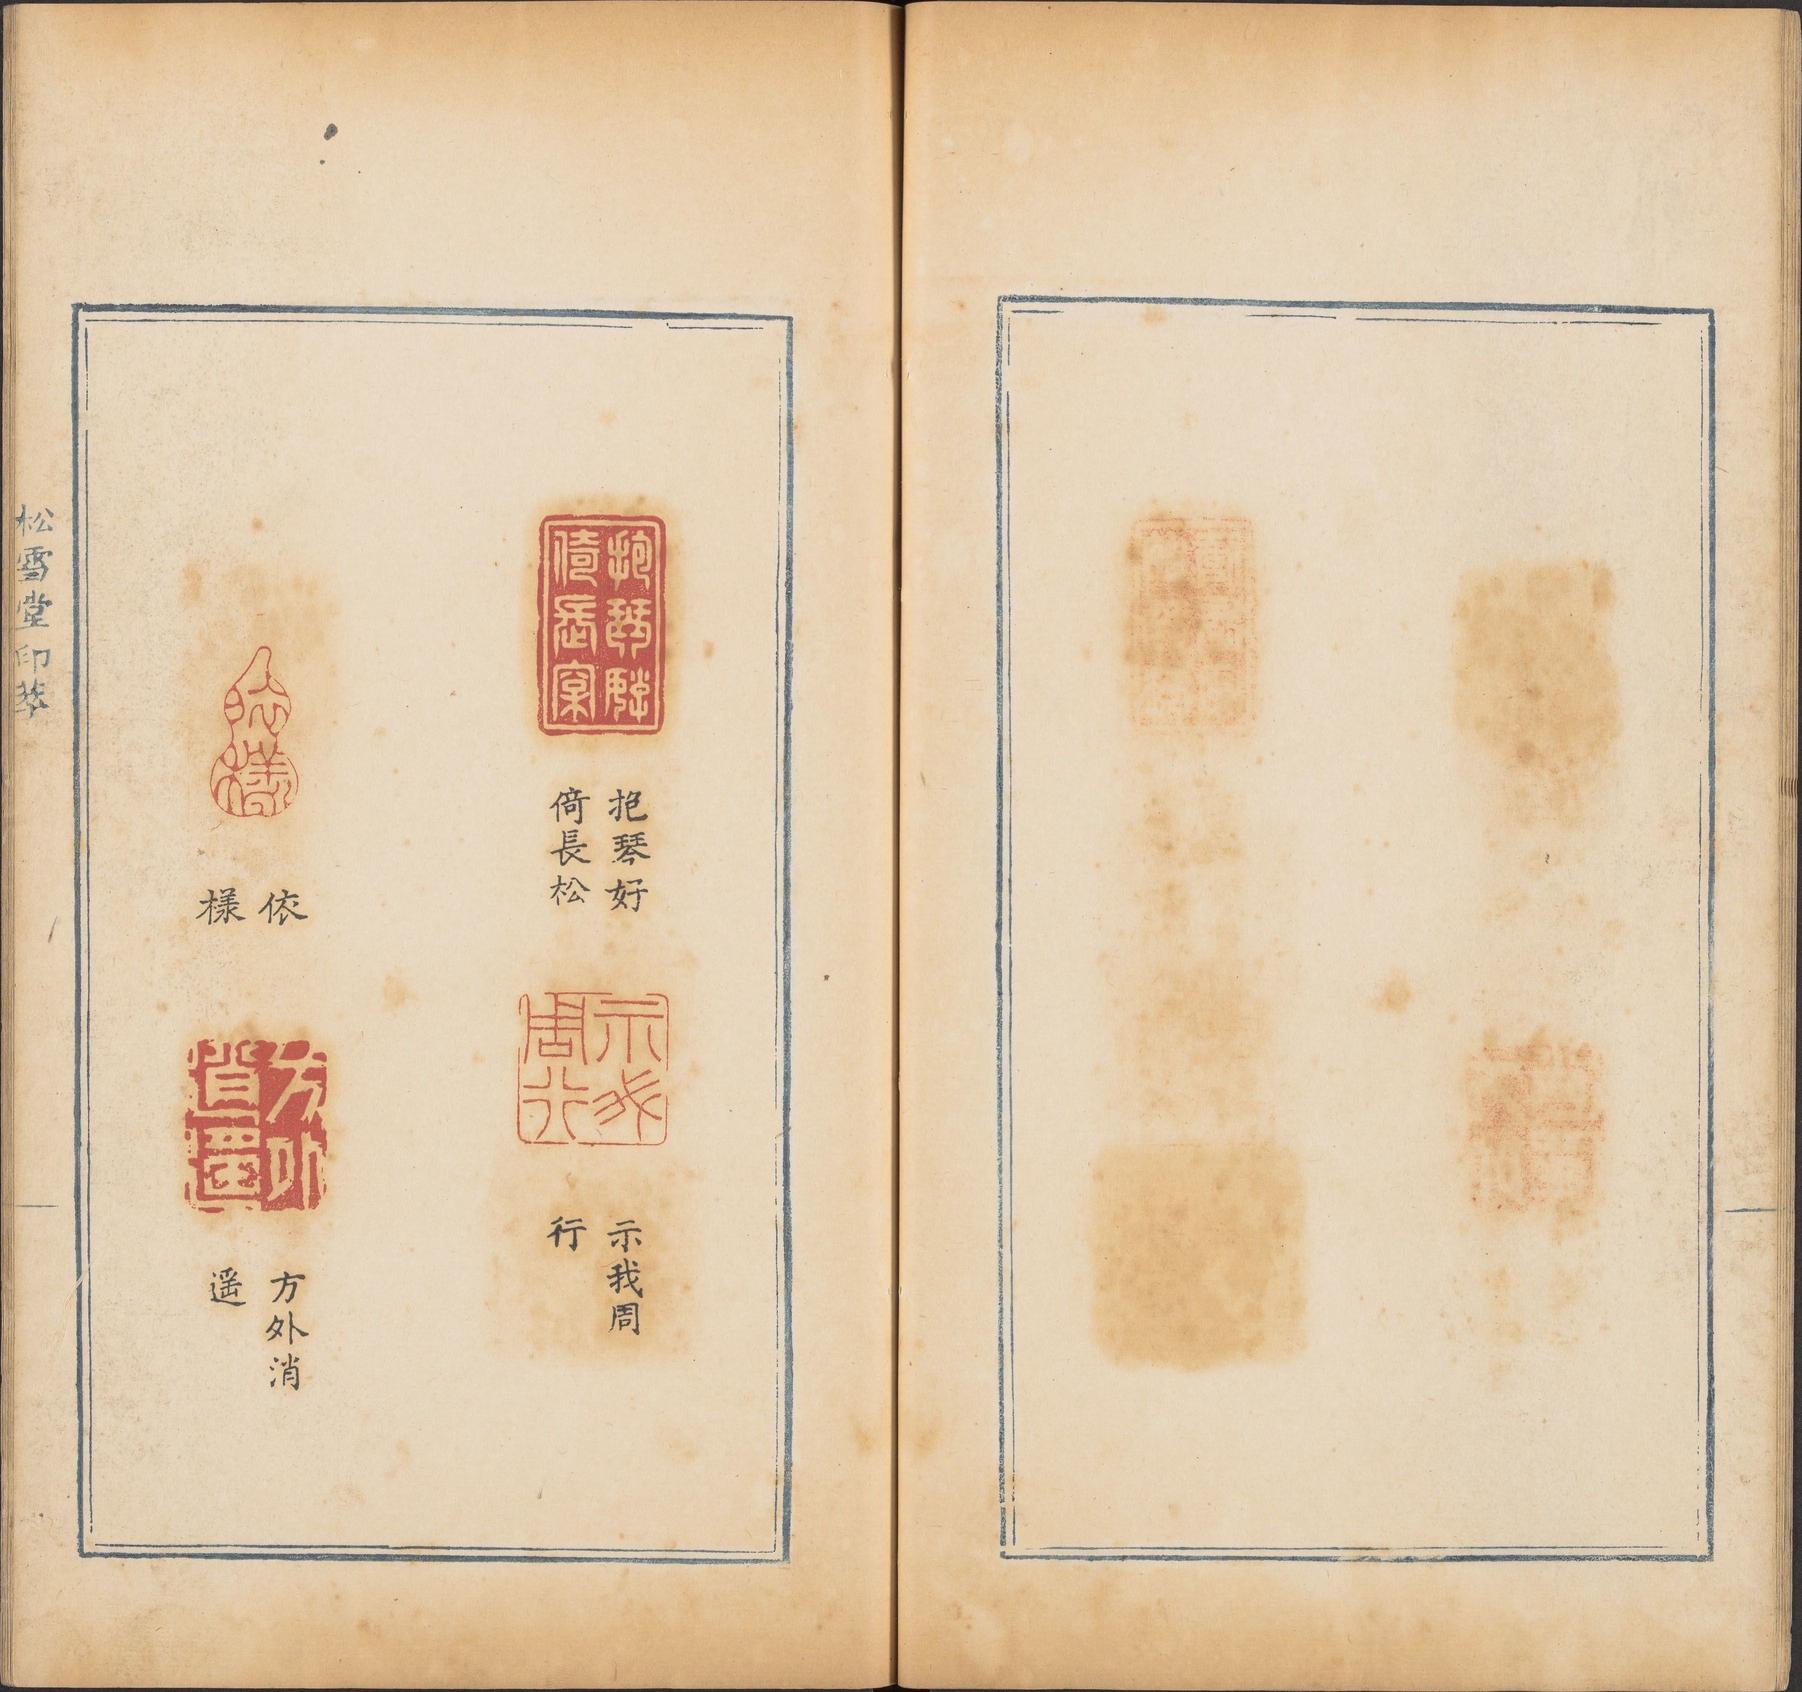 抱琴好
倚長松
抱琴好
倚長松
示我
周行
示我周
行
依
樣
依
樣
方外
消遥
方外消
遥
松雪堂印萃